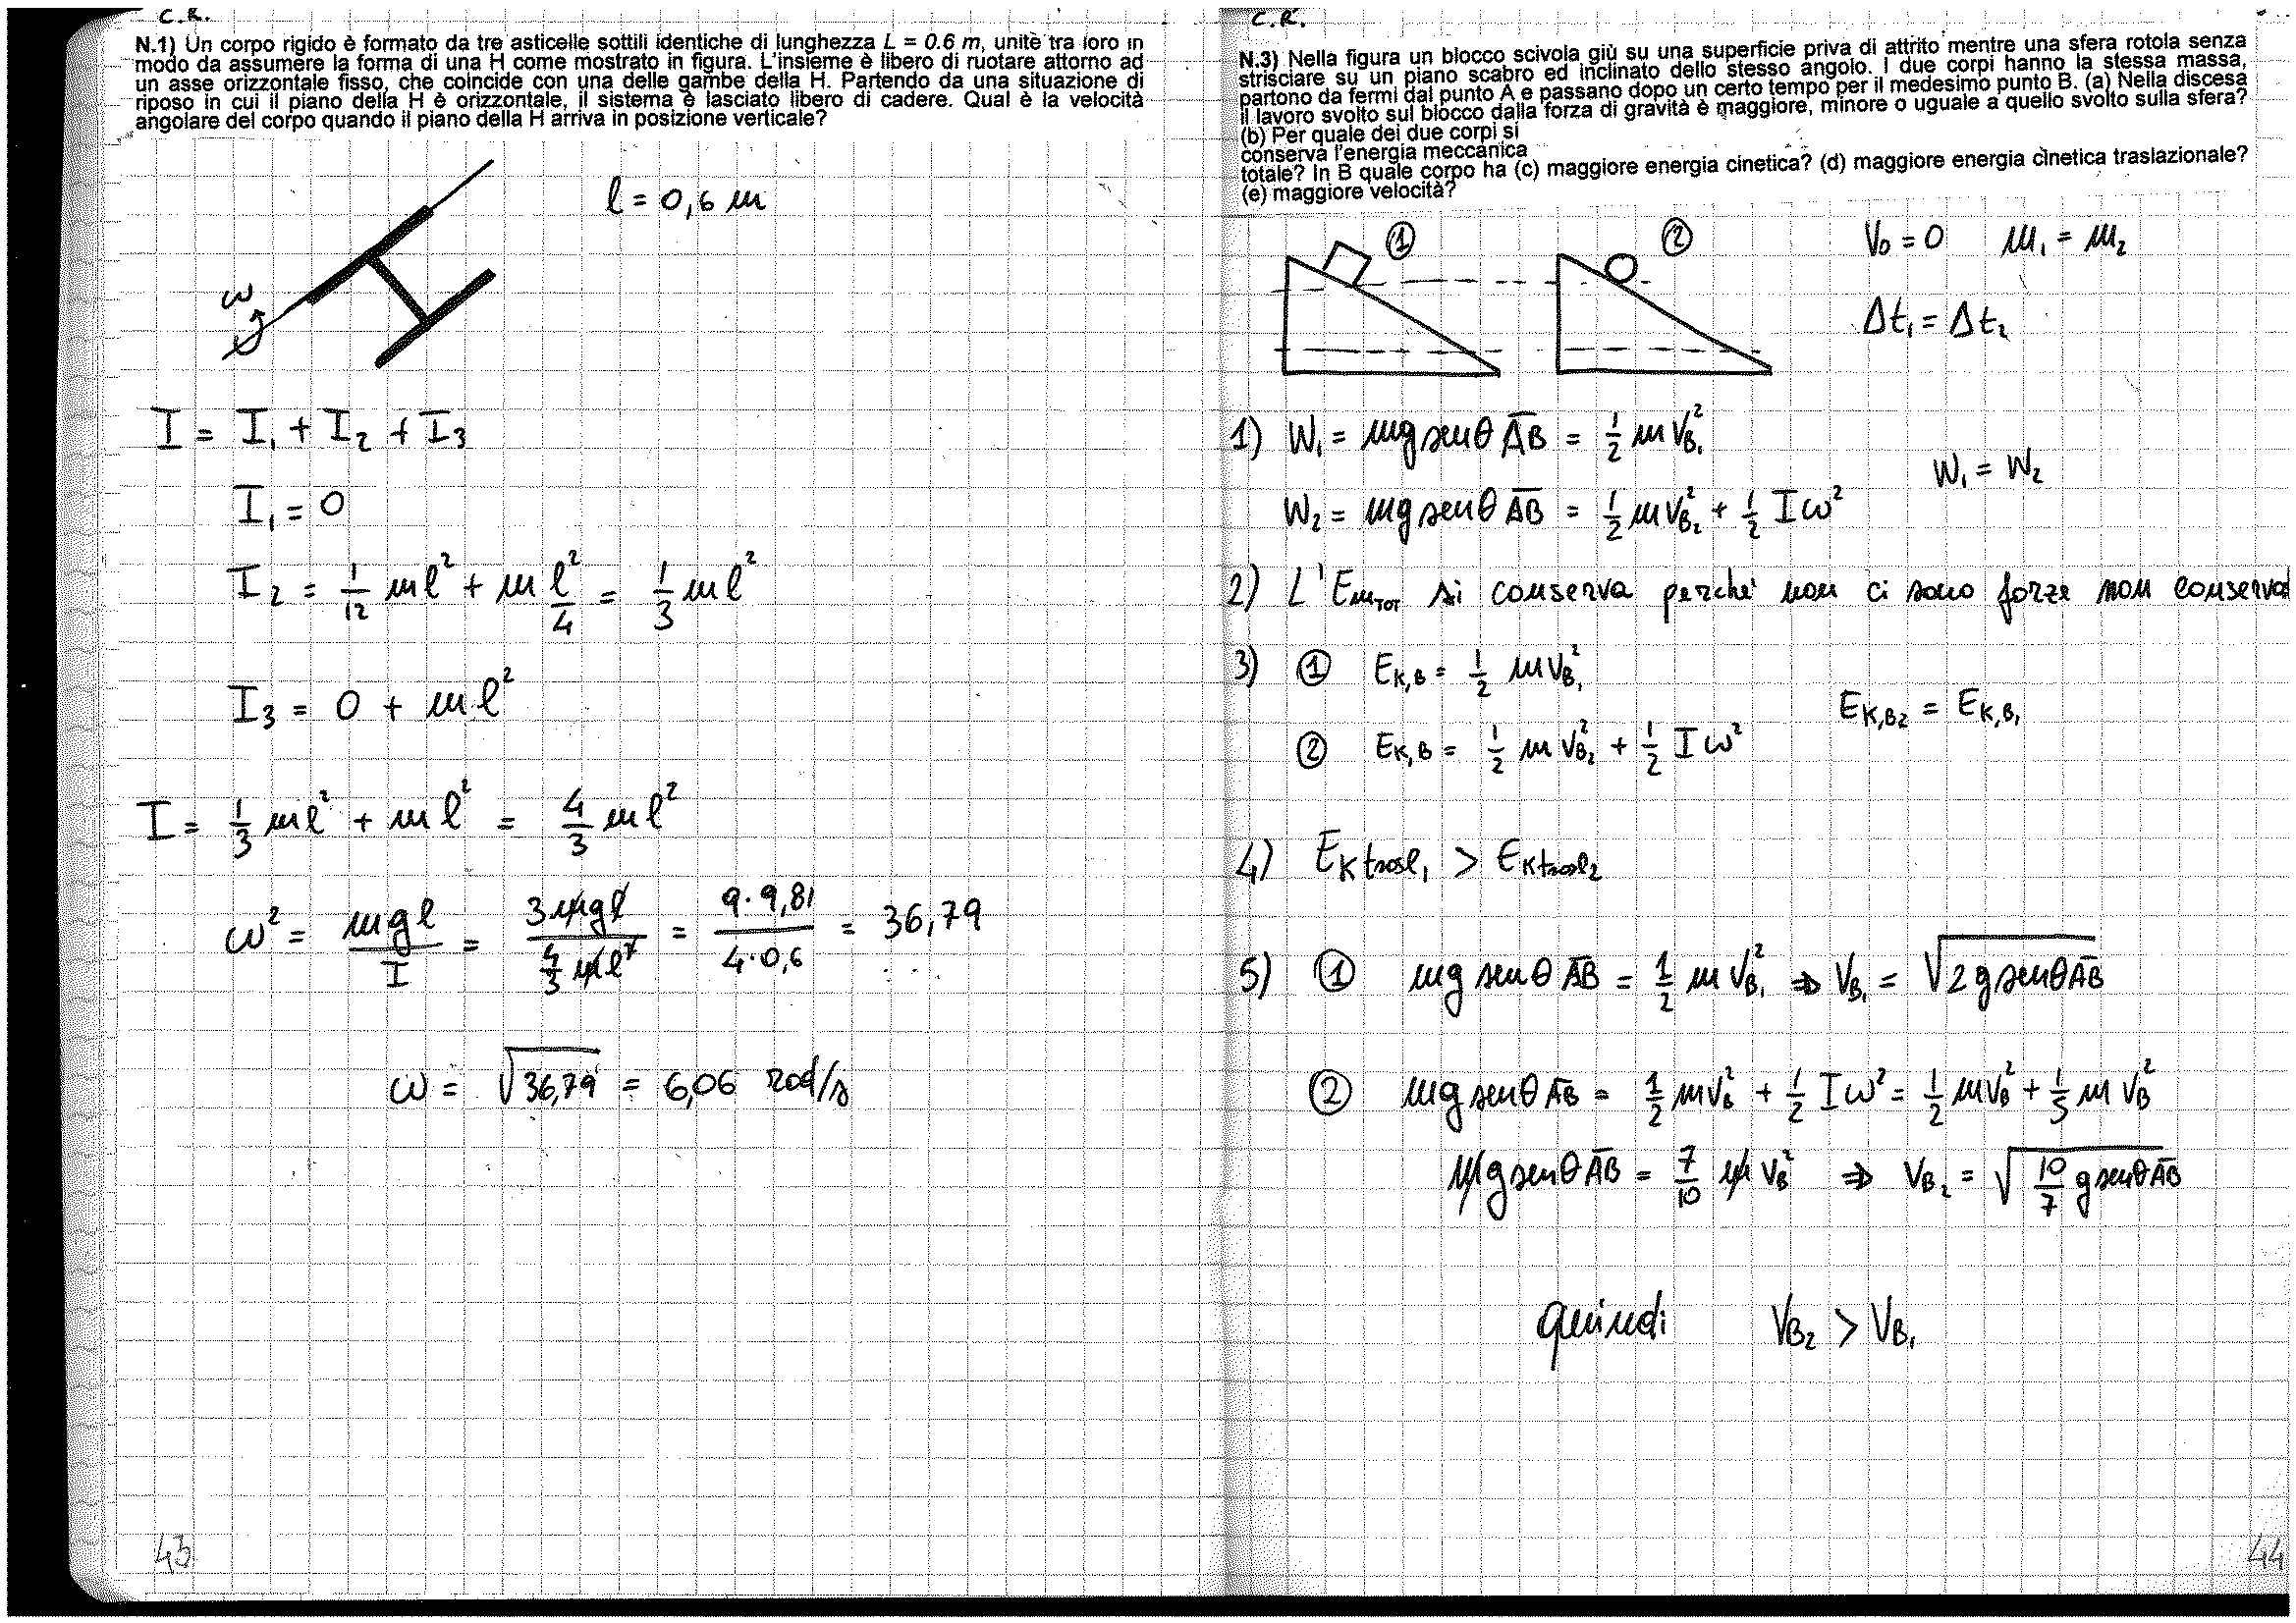 C.R.
N.1) Un corpo rigido è formato da tre asticelle sottili identiche di lunghezza L = 0.6 m, unite tra loro in
modo da assumere la forma di una H come mostrato in figura. L'insieme è libero di ruotare attorno ad
un asse orizzontale fisso, che coincide con una delle gambe della H. Partendo da una situazione di
riposo in cui il piano della H è orizzontale, il sistema è lasciato libero di cadere. Qual è la velocità
angolare del corpo quando il piano della H arriva in posizione verticale?
l = 0,6 m
ω
I = I₁ + I₂ + I₃
I₁ = 0
I₂ = 1/12 ml² + m l²/4 = 1/3 ml²
I₃ = 0 + ml²
I = 1/3 ml² + ml² = 4/3 ml²
ω² = mgl/I = 3mgl / (4/3 ml²) = 9·9,81 / 4·0,6 = 36,79
ω = √36,79 = 6,06 rad/s
43
C.R.
N.3) Nella figura un blocco scivola giù su una superficie priva di attrito mentre una sfera rotola senza
strisciare su un piano scabro ed inclinato dello stesso angolo. I due corpi hanno la stessa massa,
partono da fermi dal punto A e passano dopo un certo tempo per il medesimo punto B. (a) Nella discesa
il lavoro svolto sul blocco dalla forza di gravità è maggiore, minore o uguale a quello svolto sulla sfera?
(b) Per quale dei due corpi si
conserva l'energia meccanica
totale? In B quale corpo ha (c) maggiore energia cinetica? (d) maggiore energia cinetica traslazionale?
(e) maggiore velocità?
① ② V₀ = 0 m₁ = m₂
Δt₁ = Δt₂
1) W₁ = mg senθ AB = 1/2 mV_B₁²
W₁ = W₂
W₂ = mg senθ AB = 1/2 mV_B₂² + 1/2 Iω²
2) L'Em_TOT si conserva perché non ci sono forze non conserva
3) ① E_K,B = 1/2 mV_B₁²
E_K,B₂ = E_K,B₁
② E_K,B = 1/2 mV_B₂² + 1/2 Iω²
4) E_K trasl₁ > E_K trasl₂
5) ① mg senθ AB = 1/2 mV_B₁² ⇒ V_B₁ = √2g senθ AB
② mg senθ AB = 1/2 mV_B² + 1/2 Iω² = 1/2 mV_B² + 1/5 mV_B²
mg senθ AB = 7/10 mV_B² ⇒ V_B₂ = √10/7 g senθ AB
quindi V_B₂ > V_B₁
44